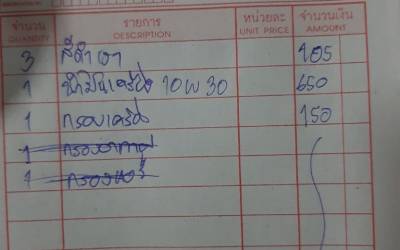 จำนวน รายการ หน่วยละ จำนวนเงิน
QUANTITY DESCRIPTION UNIT PRICE AMOUNT
3 สีดำเงา 105
1 น้ำมันเครื่อง 10W30 650
1 กรองเครื่อง 150
1 กรองอากาศ
1 กรองแอร์